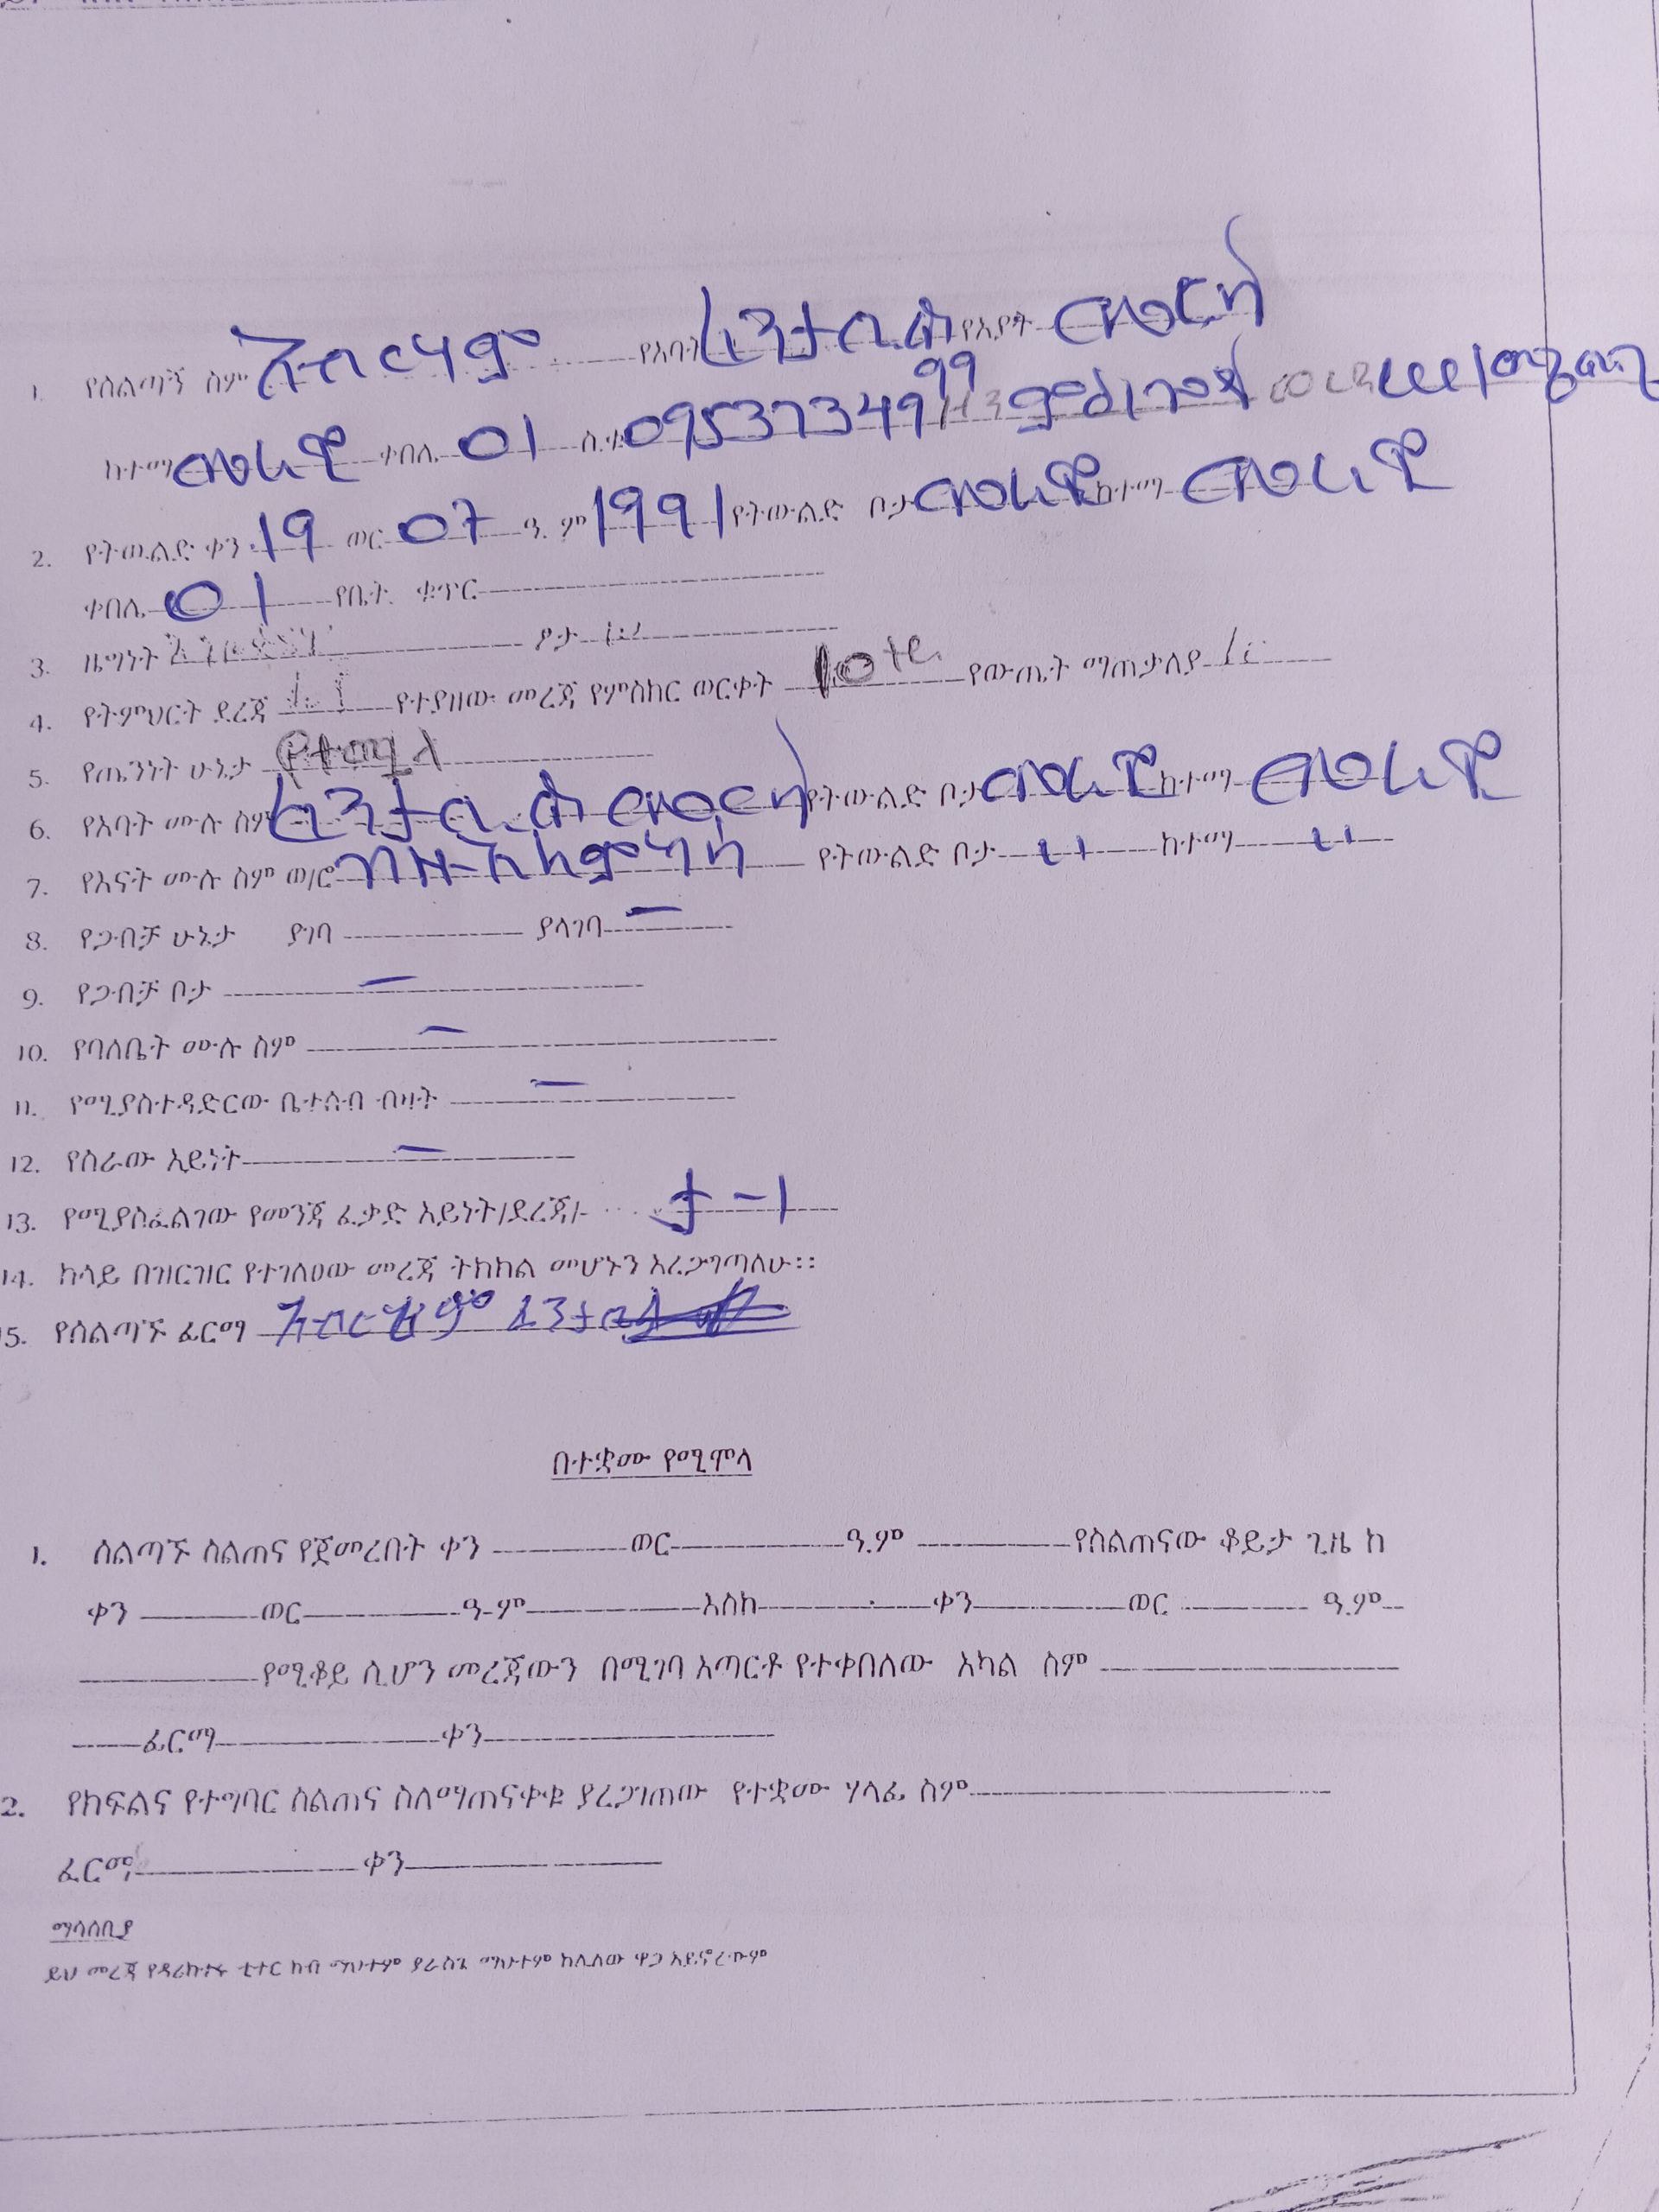 1. የሰልጣኝ ስም አብርሃም የአባት ፈንታሁን የአያት
ከተማ መራዊ ቀበሌ 01 ስ.ቁ 0953734999 ዞን ወረዳ
2. የትውልድ ቀን 19 ወር 07 ዓ.ም 1991 የትውልድ ቦታ መራዊ ከተማ መራዊ
ቀበሌ 01 የቤት ቁጥር
3. ዜግነት ፆታ
4. የትምህርት ደረጃ የተያዘው መረጃ የምስክር ወርቀት 10ተኛ የውጤት ማጠቃለያ
5. የጤንነት ሁኔታ የተሟላ
6. የአባት ሙሉ ስም የትውልድ ቦታ መራዊ ከተማ መራዊ
7. የእናት ሙሉ ስም ወ/ሮ የትውልድ ቦታ ‹‹ ከተማ ‹‹
8. የጋብቻ ሁኔታ ያገባ ያላገባ —
9. የጋብቻ ቦታ —
10. የባለቤት ሙሉ ስም —
11. የሚያስተዳድርው ቤተሰብ ብዛት —
12. የስራው አይነት —
13. የሚያስፈልገው የመንጃ ፈቃድ አይነት/ደረጃ/- ታ-1
14. ከላይ በዝርዝር የተገለፀው መረጃ ትክክል መሆኑን አረጋግጣለሁ፡፡
15. የሰልጣኙ ፊርማ አብርሃም
በተቋሙ የሚሞላ
1. ሰልጣኙ ስልጠና የጀመረበት ቀን ወር ዓ.ም የስልጠናው ቆይታ ጊዜ ከ
ቀን ወር ዓ-ም እስከ ቀን ወር ዓ.ም
የሚቆይ ሲሆን መረጃውን በሚገባ አጣርቶ የተቀበለው አካል ስም
ፊርማ ቀን
2. የክፍልና የተግባር ስልጠና ስለማጠናቀቁ ያረጋገጠው የተቋሙ ሃላፊ ስም
ፊርማ ቀን
ማሳሰቢያ
ይህ መረጃ የዳሪክተሩ ቲተር ክብ ማህተም ያራስጌ ማህተም ከሌለው ዋጋ አይኖረውም